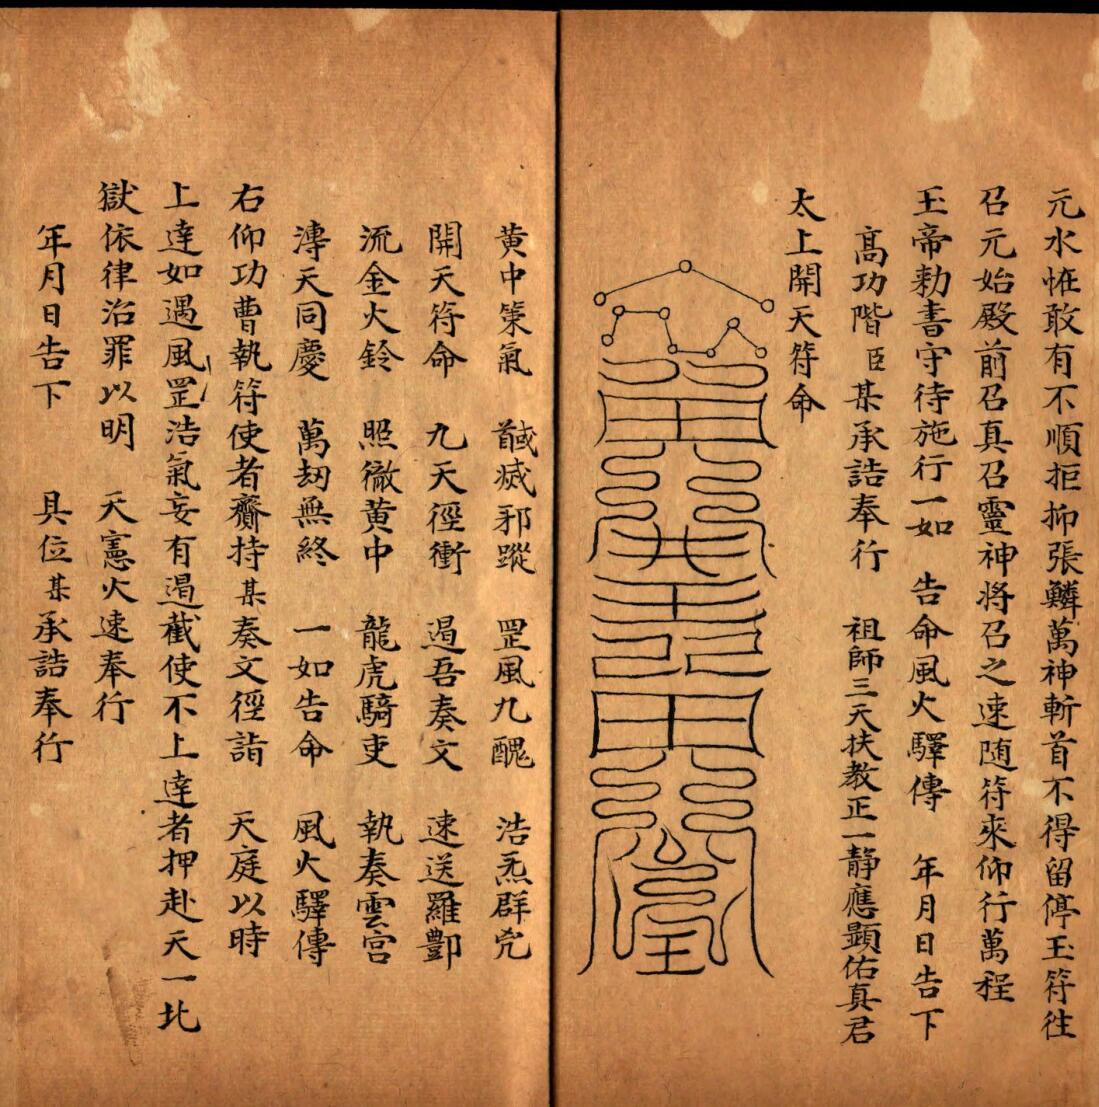 元水恠敢有不順拒抑張鱗萬神斬首不得留停玉符徃
召元始殿前召真召靈神將召之速随符来仰行萬程
玉帝勅書守待施行一如 告命風火驛傳 年月日告下
髙功階臣某承誥奉行 祖師三天扶教正一靜應顕佑真君
太上開天符命
黄中策氣 馘滅邪蹤 罡風九醜 浩炁群兇
開天符命 九天徑衝 遏吾奏文 速送羅酆
流金火鈴 照徹黄中 龍虎騎吏 執奏雲宫
漙天同慶 萬劫無終 一如告命 風火驛傳
右仰功曹執符使者齎持某奏文徑詣 天庭以時
上達如遇風罡浩氣妄有遏截使不上達者押赴天一北
獄依律治罪以明 天憲火速奉行
年月日告下 具位某承誥奉行